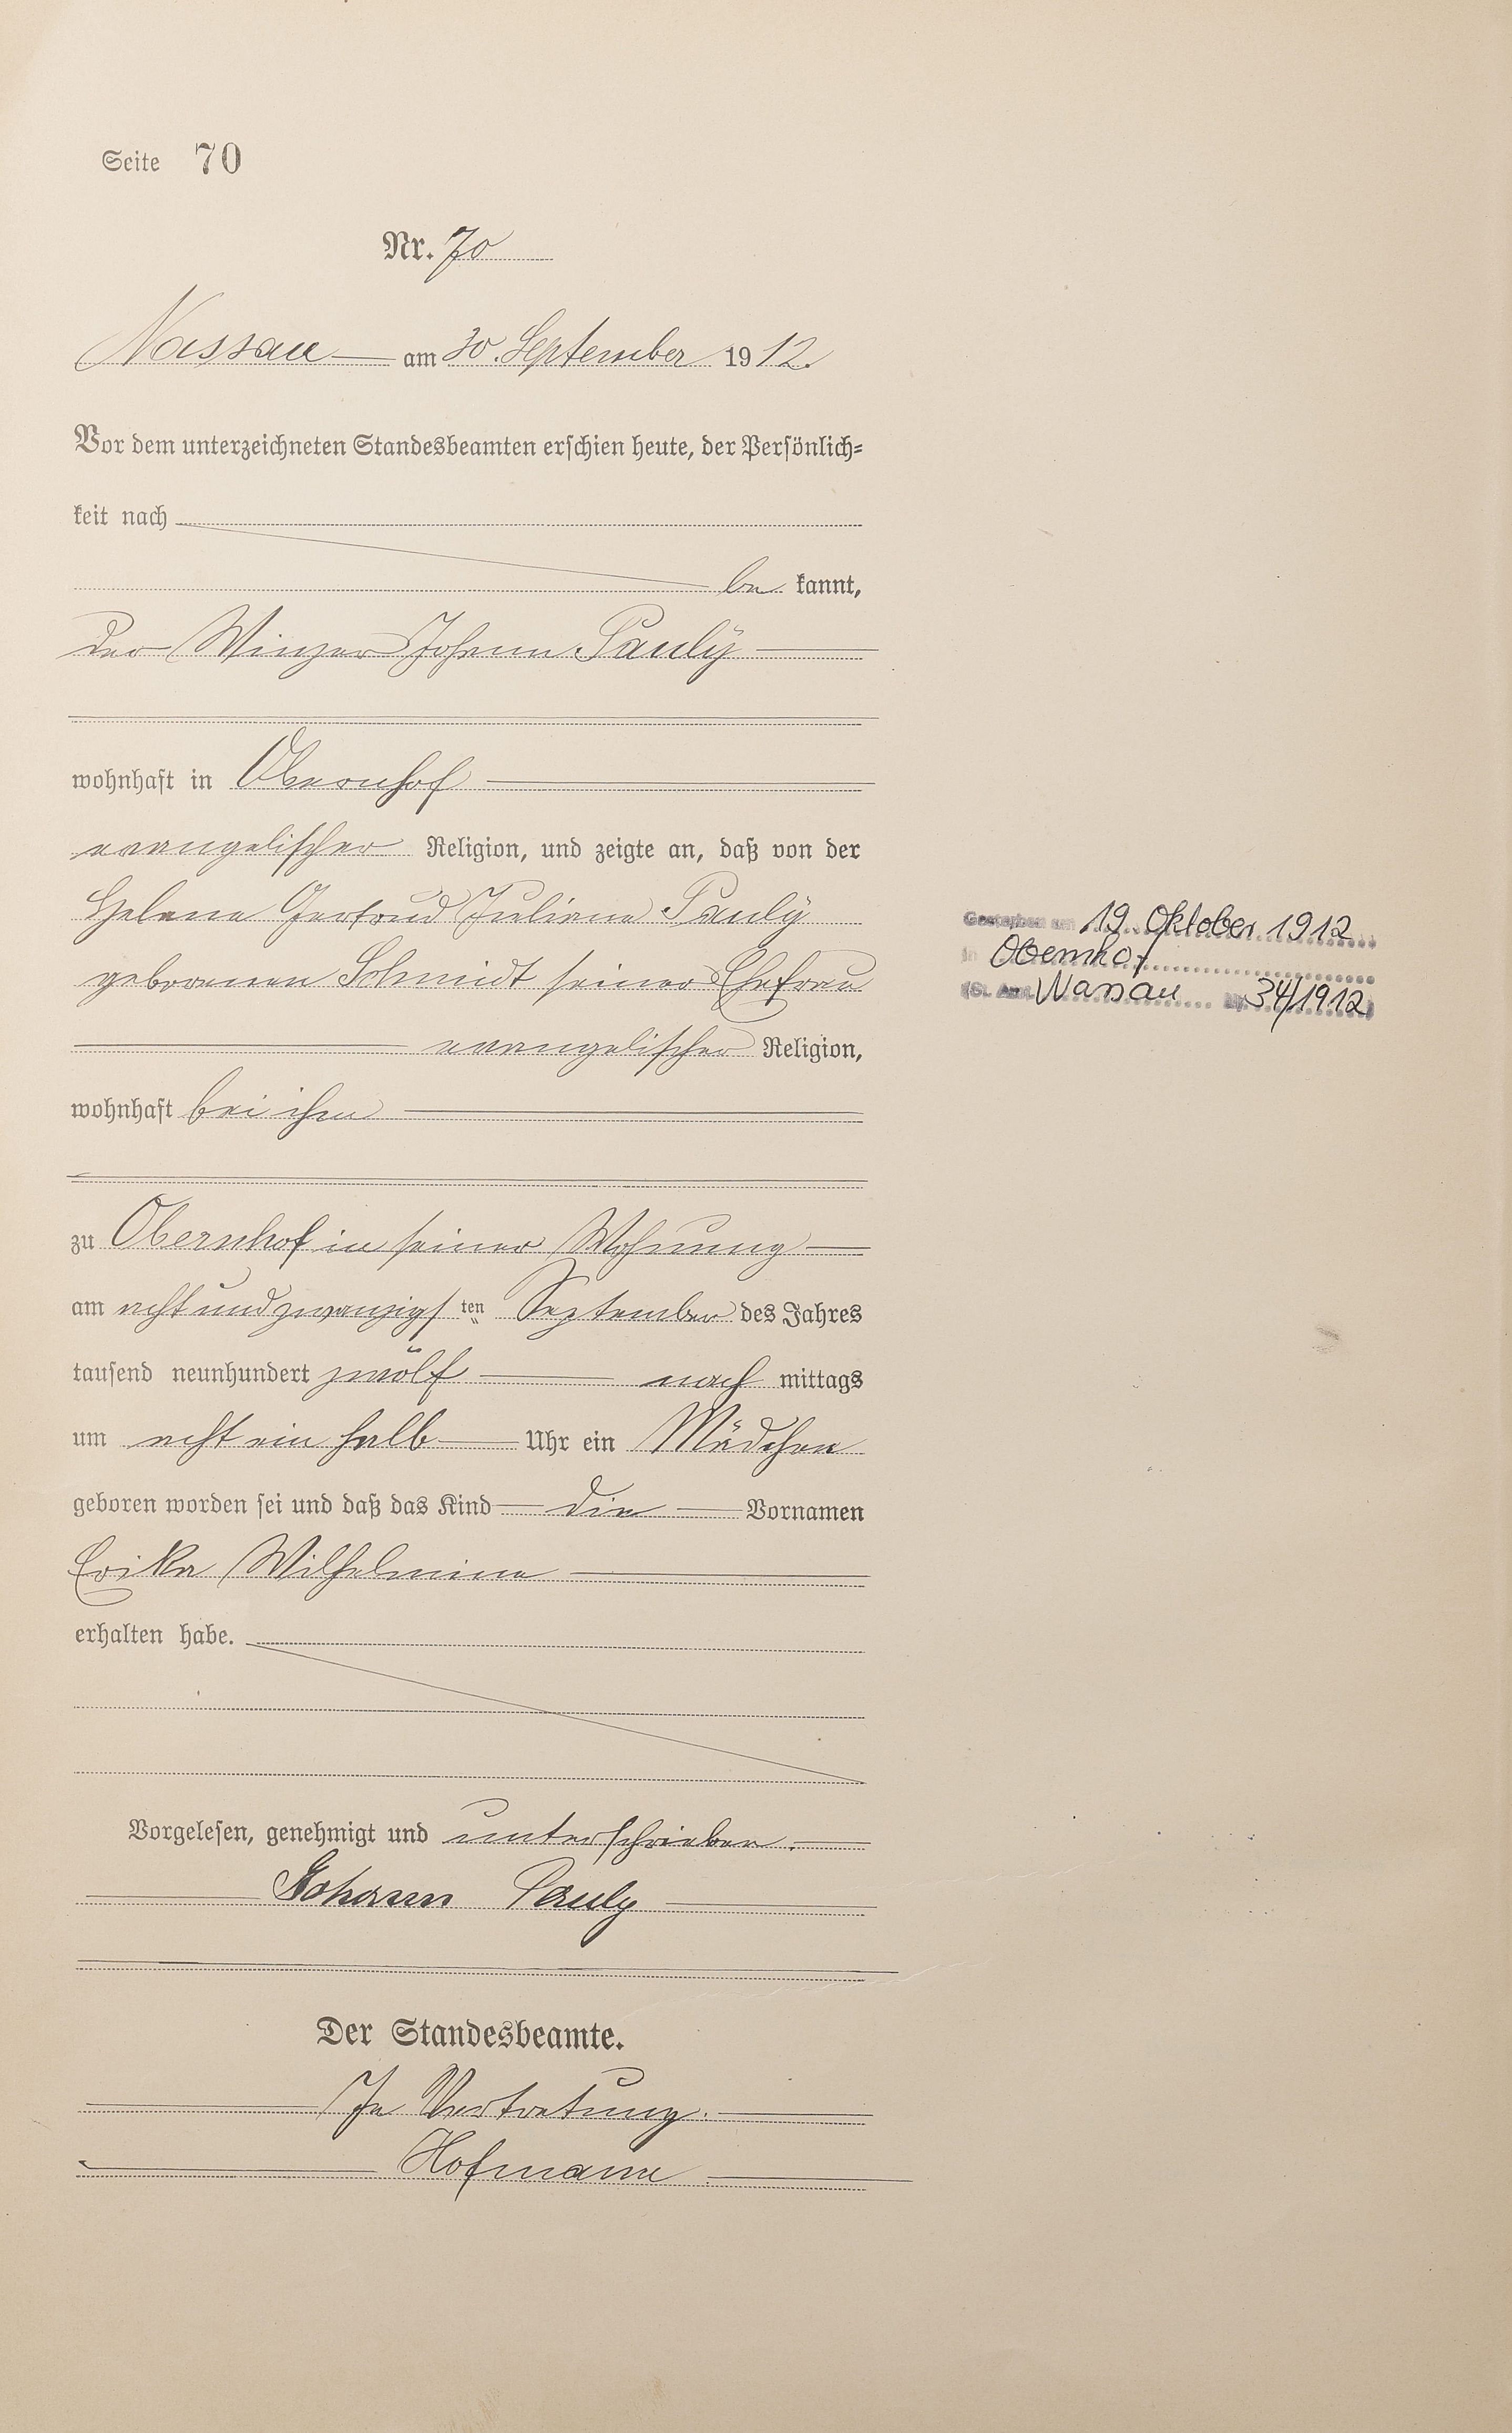 Seite 70
Nr. 70
Nassau am 30. September 1912.
Vor dem unterzeichneten Standesbeamten erschien heute, der Persönlich-
keit nach
bekannt,
der Winzer Johann Pauly
wohnhaft in Obernhof
evangelischer Religion, und zeigte an, daß von der
Helene Gertrud Juliane Pauly
geborenen Schmidt seiner Ehefrau
evangelischer Religion,
wohnhaft bei ihm
zu Obernhof in seiner Wohnung
am achtundzwanzigsten September des Jahres
tausend neunhundert zwölf nachmittags
um acht ein halb Uhr ein Mädchen
geboren worden sei und daß das Kind die Vornamen
Erika Wilhelmine
erhalten habe.
Vorgelesen, genehmigt und unterschrieben.
Johann Pauly
Der Standesbeamte.
In Vertretung.
Hofmann
Gestorben am 19. Oktober 1912
in Obernhof
(St. Amt Nassau Nr. 34/1912)